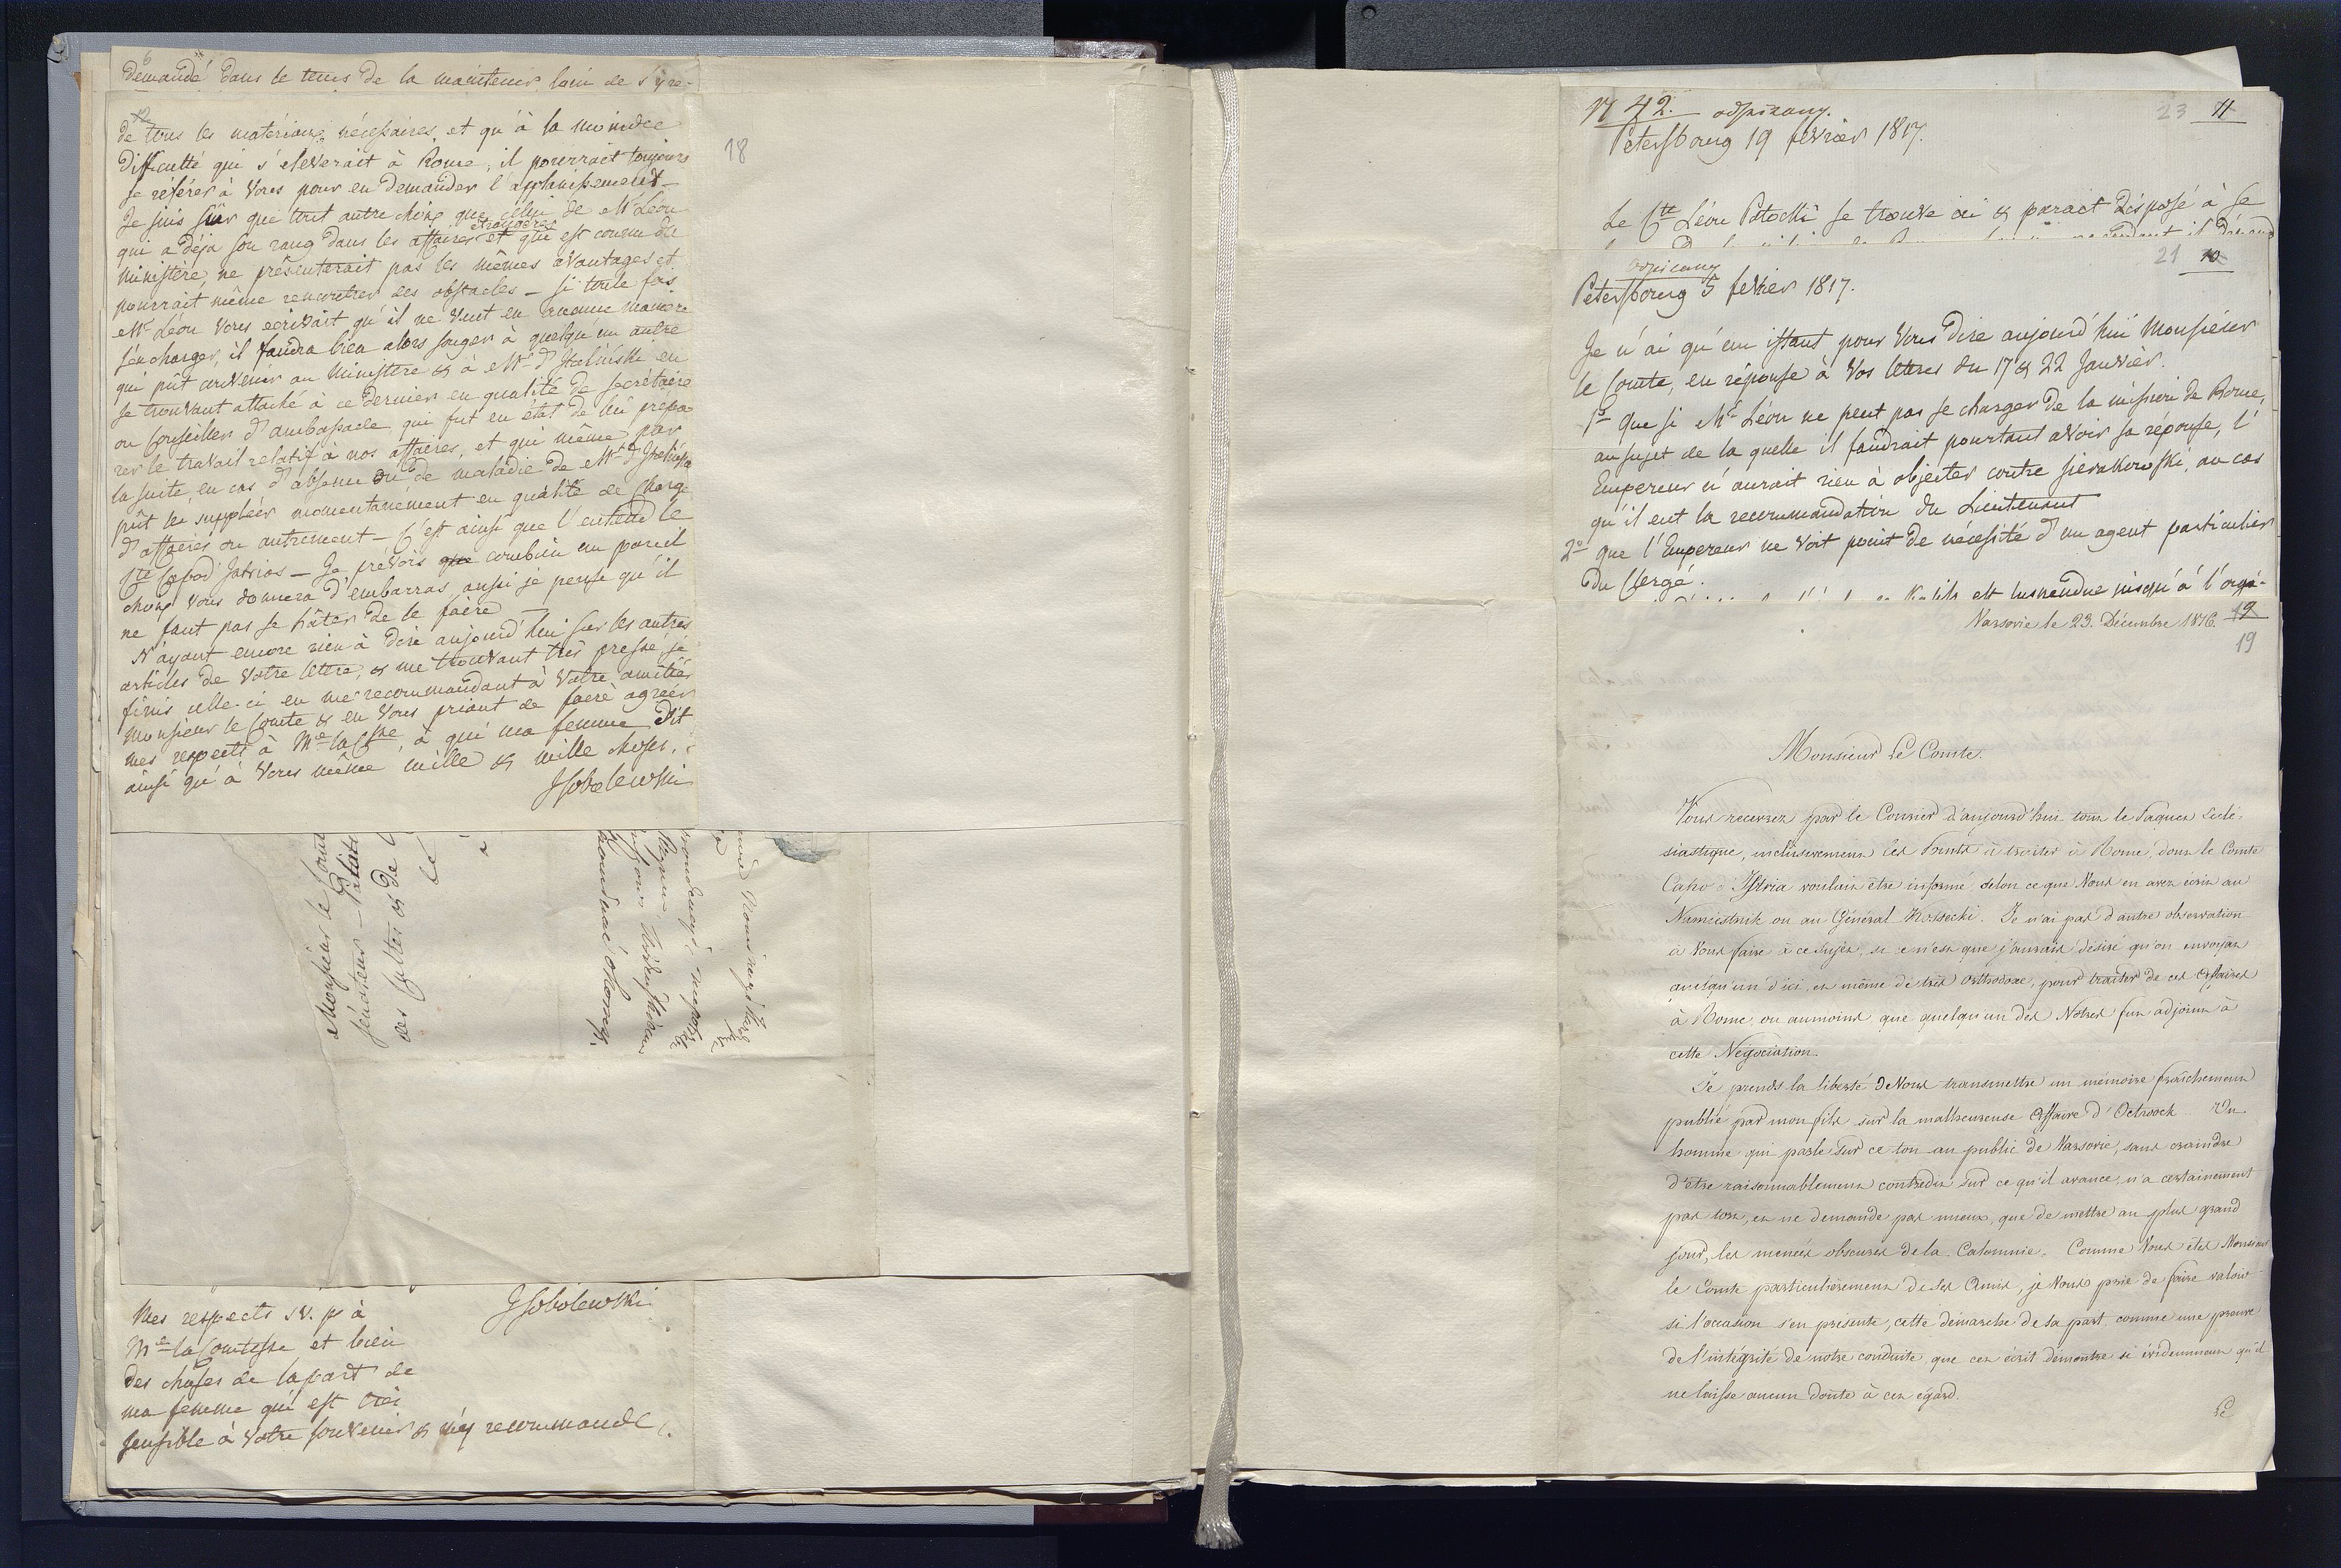 6
demandé dans le tems de la maintenir, loin de s'y re-
12
de tous les matériaux nécessaires, et qu'à la moindre
difficulté qui s'eleverait à Rome, il pourrait toujours
se référer à Vous pour en demander l'applanissement —
Je suis sûr que tout autre choix que celui de Mr Léon
étrangères
qui a déja son rang dans les affaires et qui est connu du
Ministère, ne présenterait pas les mêmes avantages et
pourrait même rencontrer des obstacles — si toute fois
Mr Léon Vous ecrivait qu'il ne veut en aucune manière
s'en charger, il faudra bien alors songer à quelqu'un autre
qui pût convenir au Ministère & à Mr d'Italinski en
se trouvant attaché à ce dernier en qualité de secrétaire
ou Conseiller d'ambassade qui fut en état de lui prépa-
rer le travail relatif à nos affaires, et qui même par
la suite, en cas d'absence ou de maladie de Mr d'Italinski
pût le suppléer momentanement en qualité de Chargé
d'affaires ou autrement — C'est ainsi que l'entend le
Cte Capod'Istrias — Je prévois que combien un pareil
choix Vous donnera d'embarras, aussi je pense qu'il
ne faut pas se hâter de le faire —
N'ayant encore rien à dire aujourd'hui sur les autres
articles de Votre lettre, & me trouvant très pressé, je
finis celle-ci en me recommandant à Votre amitié
Monsieur le Comte & en Vous priant de faire agréer
mes respects à Me la Csse, à qui ma femme dit
ainsi qu'à Vous même mille & mille choses.
JSobolewski
18
à Monsieur le
Sénateur — Palatin
des Cultes & de l'
à
Mes respects s.v.p à
Me la Comtesse et bien
des choses de la part de
ma femme qui est très
sensible à Votre souvenir & s'y recommande.
JSobolewski
N 42. odpisany.
23 11
Petersbourg 19 fevrier 1817.
Le Cte Léon Potocki se trouve ici & parait disposé à se
21 10
odpisany
Petersbourg 5 fevrier 1817.
Je n'ai qu'un istant pour Vous dire aujourd'hui Monsieur
le Comte, en réponse à Vos lettres du 17 & 22 Janvier.
1o que si Mr Léon ne peut pas se charger de la mission de Rome,
au sujet de la quelle il faudrait pourtant avoir sa réponse, l'
Empereur n'aurait rien à objecter contre Sierakowski, au cas
qu'il eut la recommandation du Lieutenant
2o que l'Empereur ne voit point de nécessité d'un agent particulier
du Clergé.
est suspendue jusqu'à l'orga-
Varsovie le 23. Décembre 1816. 12
19
Monsieur Le Comte.
Vous recevrez par le Courier d'aujourd'hui tout le Paquet Ecclé-
siastique, inclusivement les Points à traiter à Rome, dont le Comte
Capo d'Istria voulait être informé selon ce que Vous en avez écrit au
Namiestnik ou au Général Kossecki. Je n'ai pas d'autre observation
à Vous faire à ce sujet, si ce n'est que j'aurais désiré qu'on envoyât
quelqu'un d'ici, et même de très Orthodoxe, pour traiter de ces Affaires
à Rome, ou aumoins que quelqu'un des Notres fut adjoint à
cette Négociation.
Je prends la liberté de Vous transmettre un mémoire fraîchement
publié par mon fils sur la malheureuse Affaire d'Octroock. Un
homme qui parle sur ce ton au public de Varsovie, sans craindre
d'être raisonnablement contredit sur ce qu'il avance, n'a certainement
pas tort, et ne demande pas mieux, que de mettre au plus grand
jour, les menées obscures de la Calomnie. Comme Vous êtes Monsieur
le Comte particulièrement de ses Amis, je Vous prie de faire valoir
si l'occasion s'en présente, cette démarche de sa part comme une preuve
de l'intégrité de notre conduite, que cet écrit démontre si évidemment qu'il
ne laisse aucun doute à cet égard.
Le